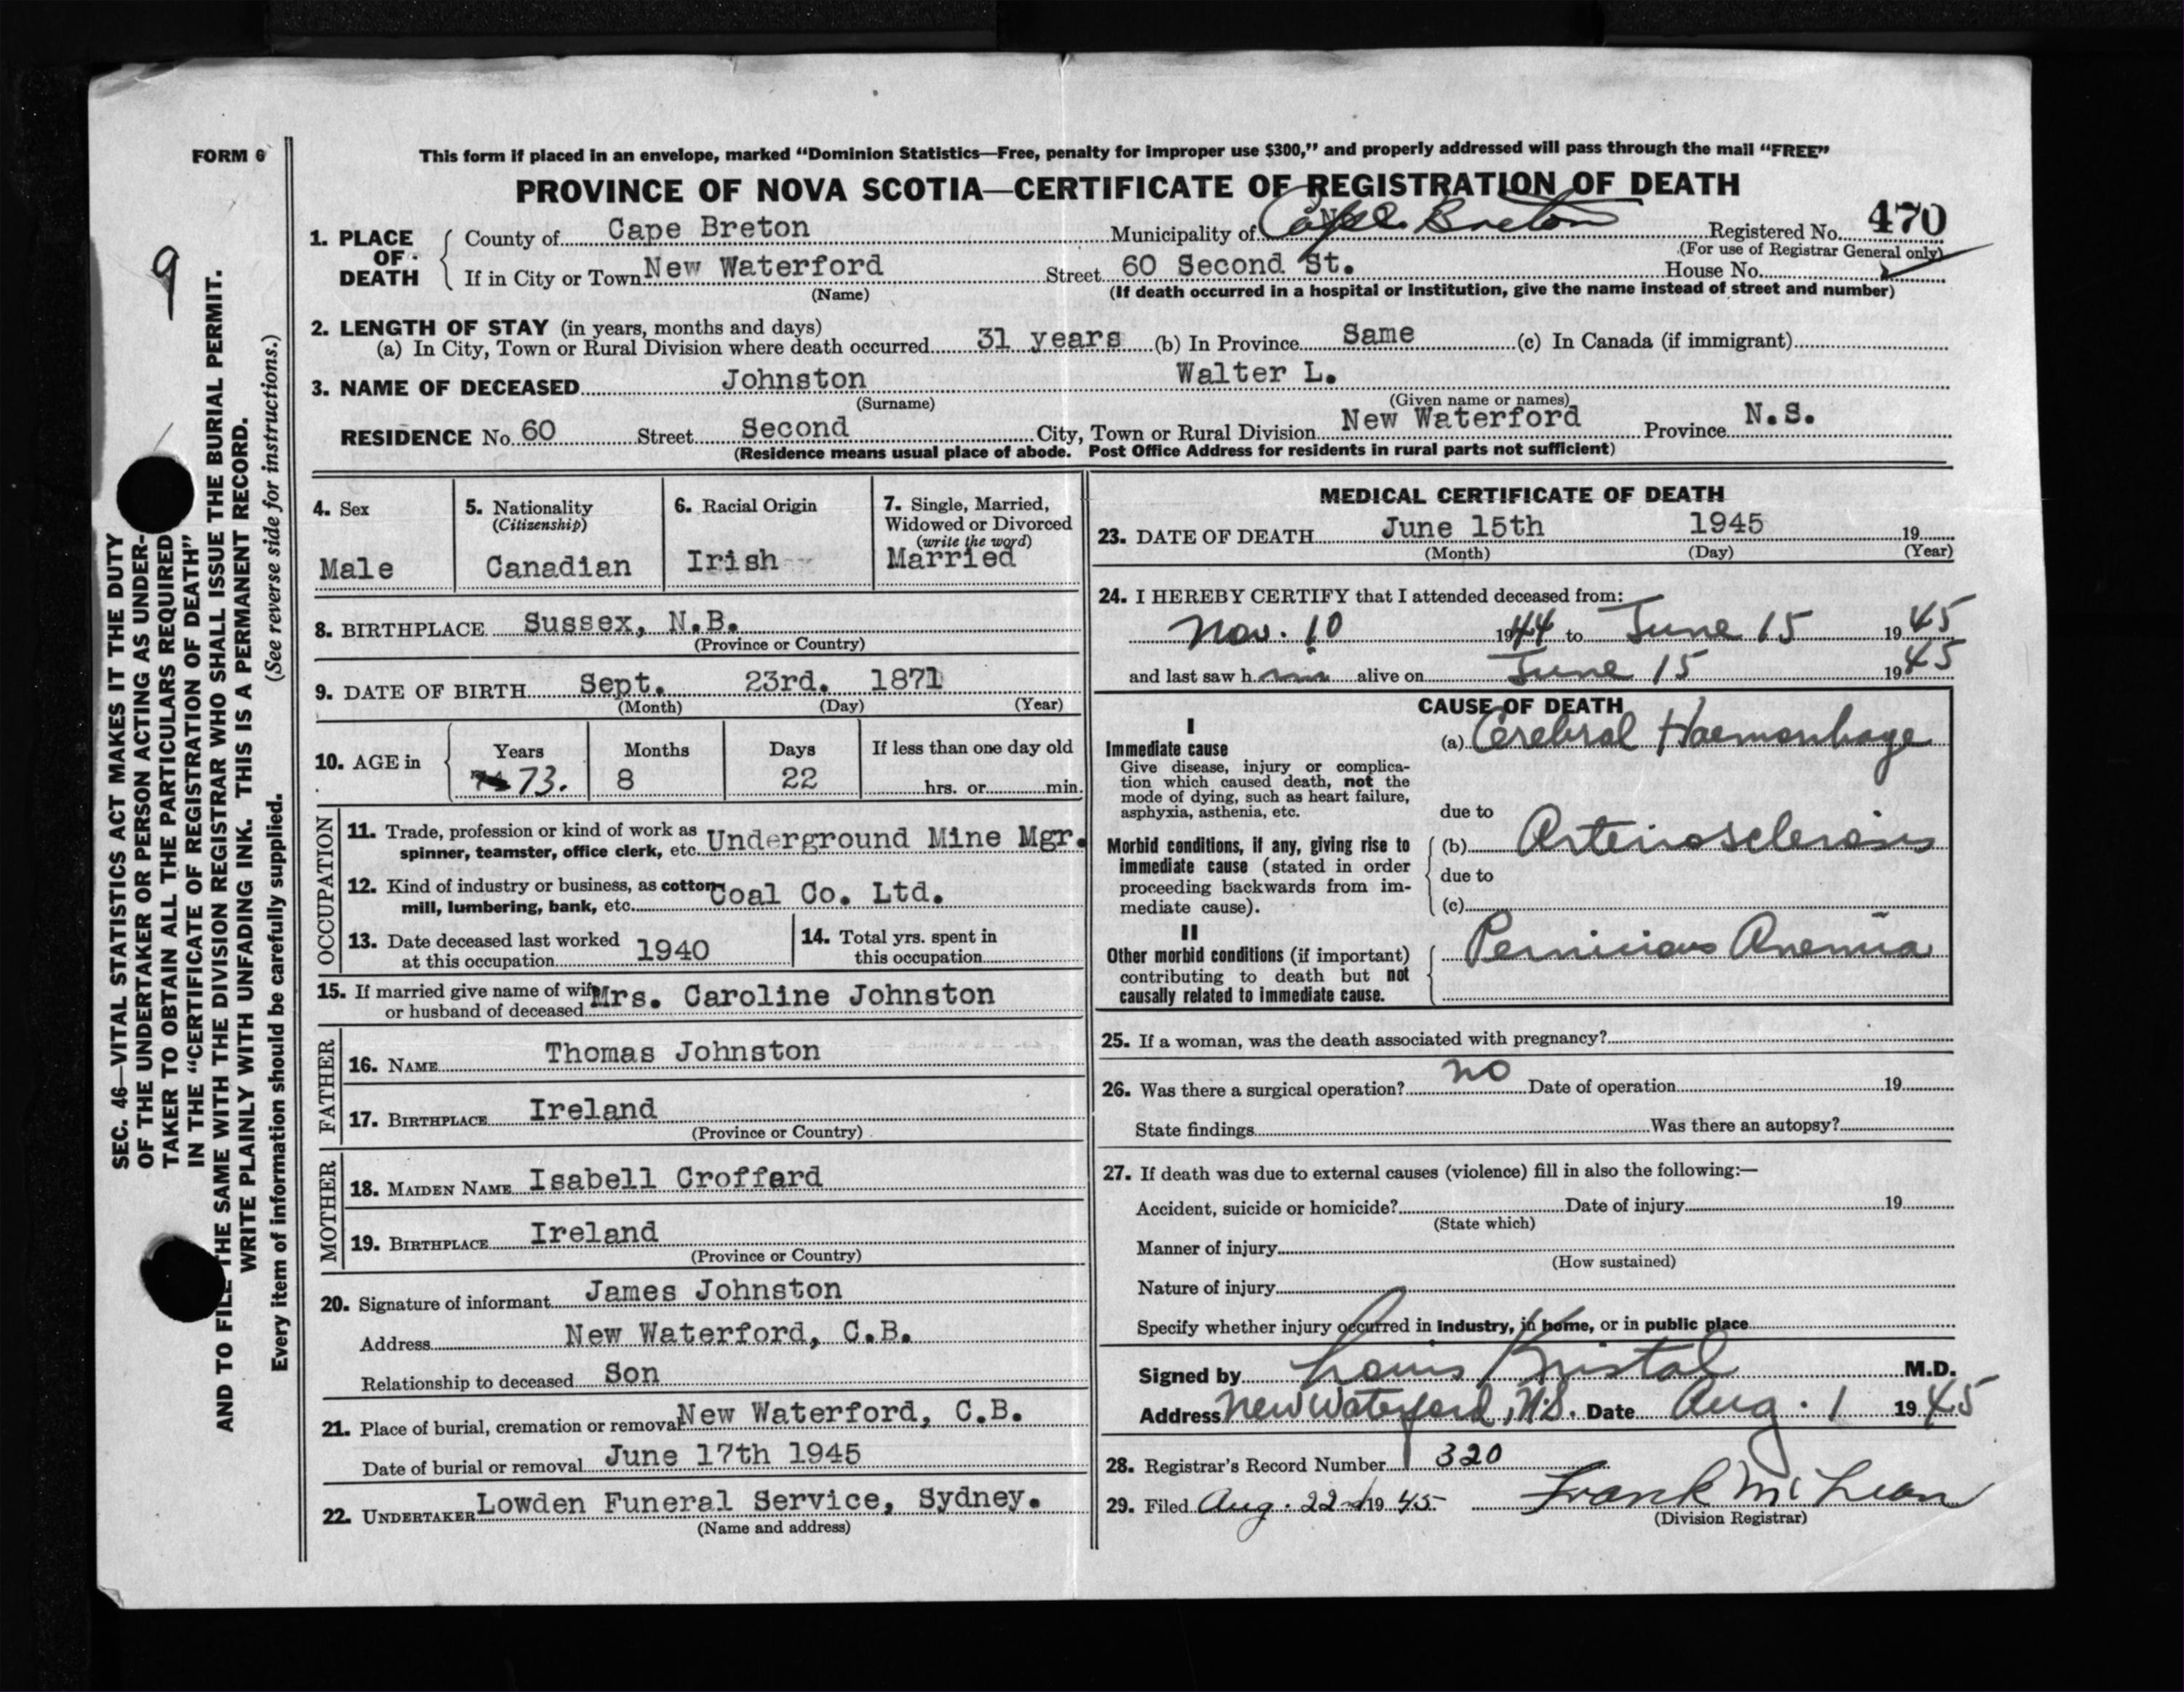 FORM 6
This form if placed in an envelope, marked “Dominion Statistics—Free, penalty for improper use $300,” and properly addressed will pass through the mail “FREE”
PROVINCE OF NOVA SCOTIA—CERTIFICATE OF REGISTRATION OF DEATH
1. PLACE OF DEATH
County of Cape Breton Municipality of Cape Breton Registered No. 470
(For use of Registrar General only)
If in City or Town New Waterford Street 60 Second St. House No.
(Name) (If death occurred in a hospital or institution, give the name instead of street and number)
2. LENGTH OF STAY (in years, months and days)
(a) In City, Town or Rural Division where death occurred 31 years (b) In Province Same (c) In Canada (if immigrant)
3. NAME OF DECEASED Johnston Walter L.
(Surname) (Given name or names)
RESIDENCE No. 60 Street Second City, Town or Rural Division New Waterford Province N.S.
(Residence means usual place of abode. Post Office Address for residents in rural parts not sufficient)
4. Sex
Male
5. Nationality
(Citizenship)
Canadian
6. Racial Origin
Irish
7. Single, Married,
Widowed or Divorced
(write the word)
Married
8. BIRTHPLACE Sussex, N.B.
(Province or Country)
9. DATE OF BIRTH Sept. 23rd. 1871
(Month) (Day) (Year)
10. AGE in
Years Months Days If less than one day old
73. 8 22 hrs. or min.
OCCUPATION
11. Trade, profession or kind of work as
spinner, teamster, office clerk, etc. Underground Mine Mgr.
12. Kind of industry or business, as cotton
mill, lumbering, bank, etc. Coal Co. Ltd.
13. Date deceased last worked
at this occupation 1940
14. Total yrs. spent in
this occupation
15. If married give name of wife
or husband of deceased Mrs. Caroline Johnston
FATHER
16. NAME Thomas Johnston
17. BIRTHPLACE Ireland
(Province or Country)
MOTHER
18. MAIDEN NAME Isabell Croffard
19. BIRTHPLACE Ireland
(Province or Country)
20. Signature of informant James Johnston
Address New Waterford, C.B.
Relationship to deceased Son
21. Place of burial, cremation or removal New Waterford, C.B.
Date of burial or removal June 17th 1945
22. UNDERTAKER Lowden Funeral Service, Sydney.
(Name and address)
MEDICAL CERTIFICATE OF DEATH
23. DATE OF DEATH June 15th 1945 19
(Month) (Day) (Year)
24. I HEREBY CERTIFY that I attended deceased from:
Nov. 10 1944 to June 15 1945
and last saw him alive on June 15 1945
CAUSE OF DEATH
I
Immediate cause
Give disease, injury or complica-
tion which caused death, not the
mode of dying, such as heart failure,
asphyxia, asthenia, etc.
(a) Cerebral Haemorrhage
due to
Morbid conditions, if any, giving rise to
immediate cause (stated in order
proceeding backwards from im-
mediate cause).
(b) Arteriosclerosis
due to
(c)
II
Other morbid conditions (if important)
contributing to death but not
causally related to immediate cause.
Pernicious Anemia
25. If a woman, was the death associated with pregnancy?
26. Was there a surgical operation? no Date of operation 19
State findings Was there an autopsy?
27. If death was due to external causes (violence) fill in also the following:—
Accident, suicide or homicide? Date of injury 19
(State which)
Manner of injury
(How sustained)
Nature of injury
Specify whether injury occurred in industry, in home, or in public place
Signed by Louis Kristal M.D.
Address New Waterford, N.S. Date Aug. 1 1945
28. Registrar's Record Number 320
29. Filed Aug. 22nd 1945 Frank McLean
(Division Registrar)
9
SEC. 46—VITAL STATISTICS ACT MAKES IT THE DUTY
OF THE UNDERTAKER OR PERSON ACTING AS UNDER-
TAKER TO OBTAIN ALL THE PARTICULARS REQUIRED
IN THE “CERTIFICATE OF REGISTRATION OF DEATH”
AND TO FILE THE SAME WITH THE DIVISION REGISTRAR WHO SHALL ISSUE THE BURIAL PERMIT.
WRITE PLAINLY WITH UNFADING INK. THIS IS A PERMANENT RECORD.
Every item of information should be carefully supplied. (See reverse side for instructions.)